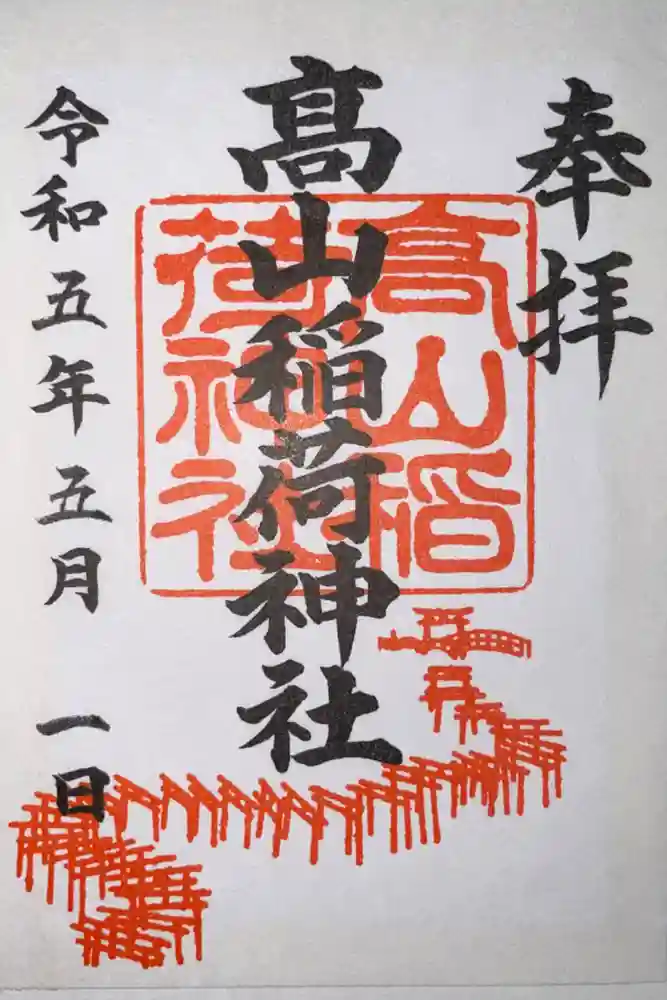 奉拝
髙山稲荷神社
髙山稲
荷神社
令和五年五月一日